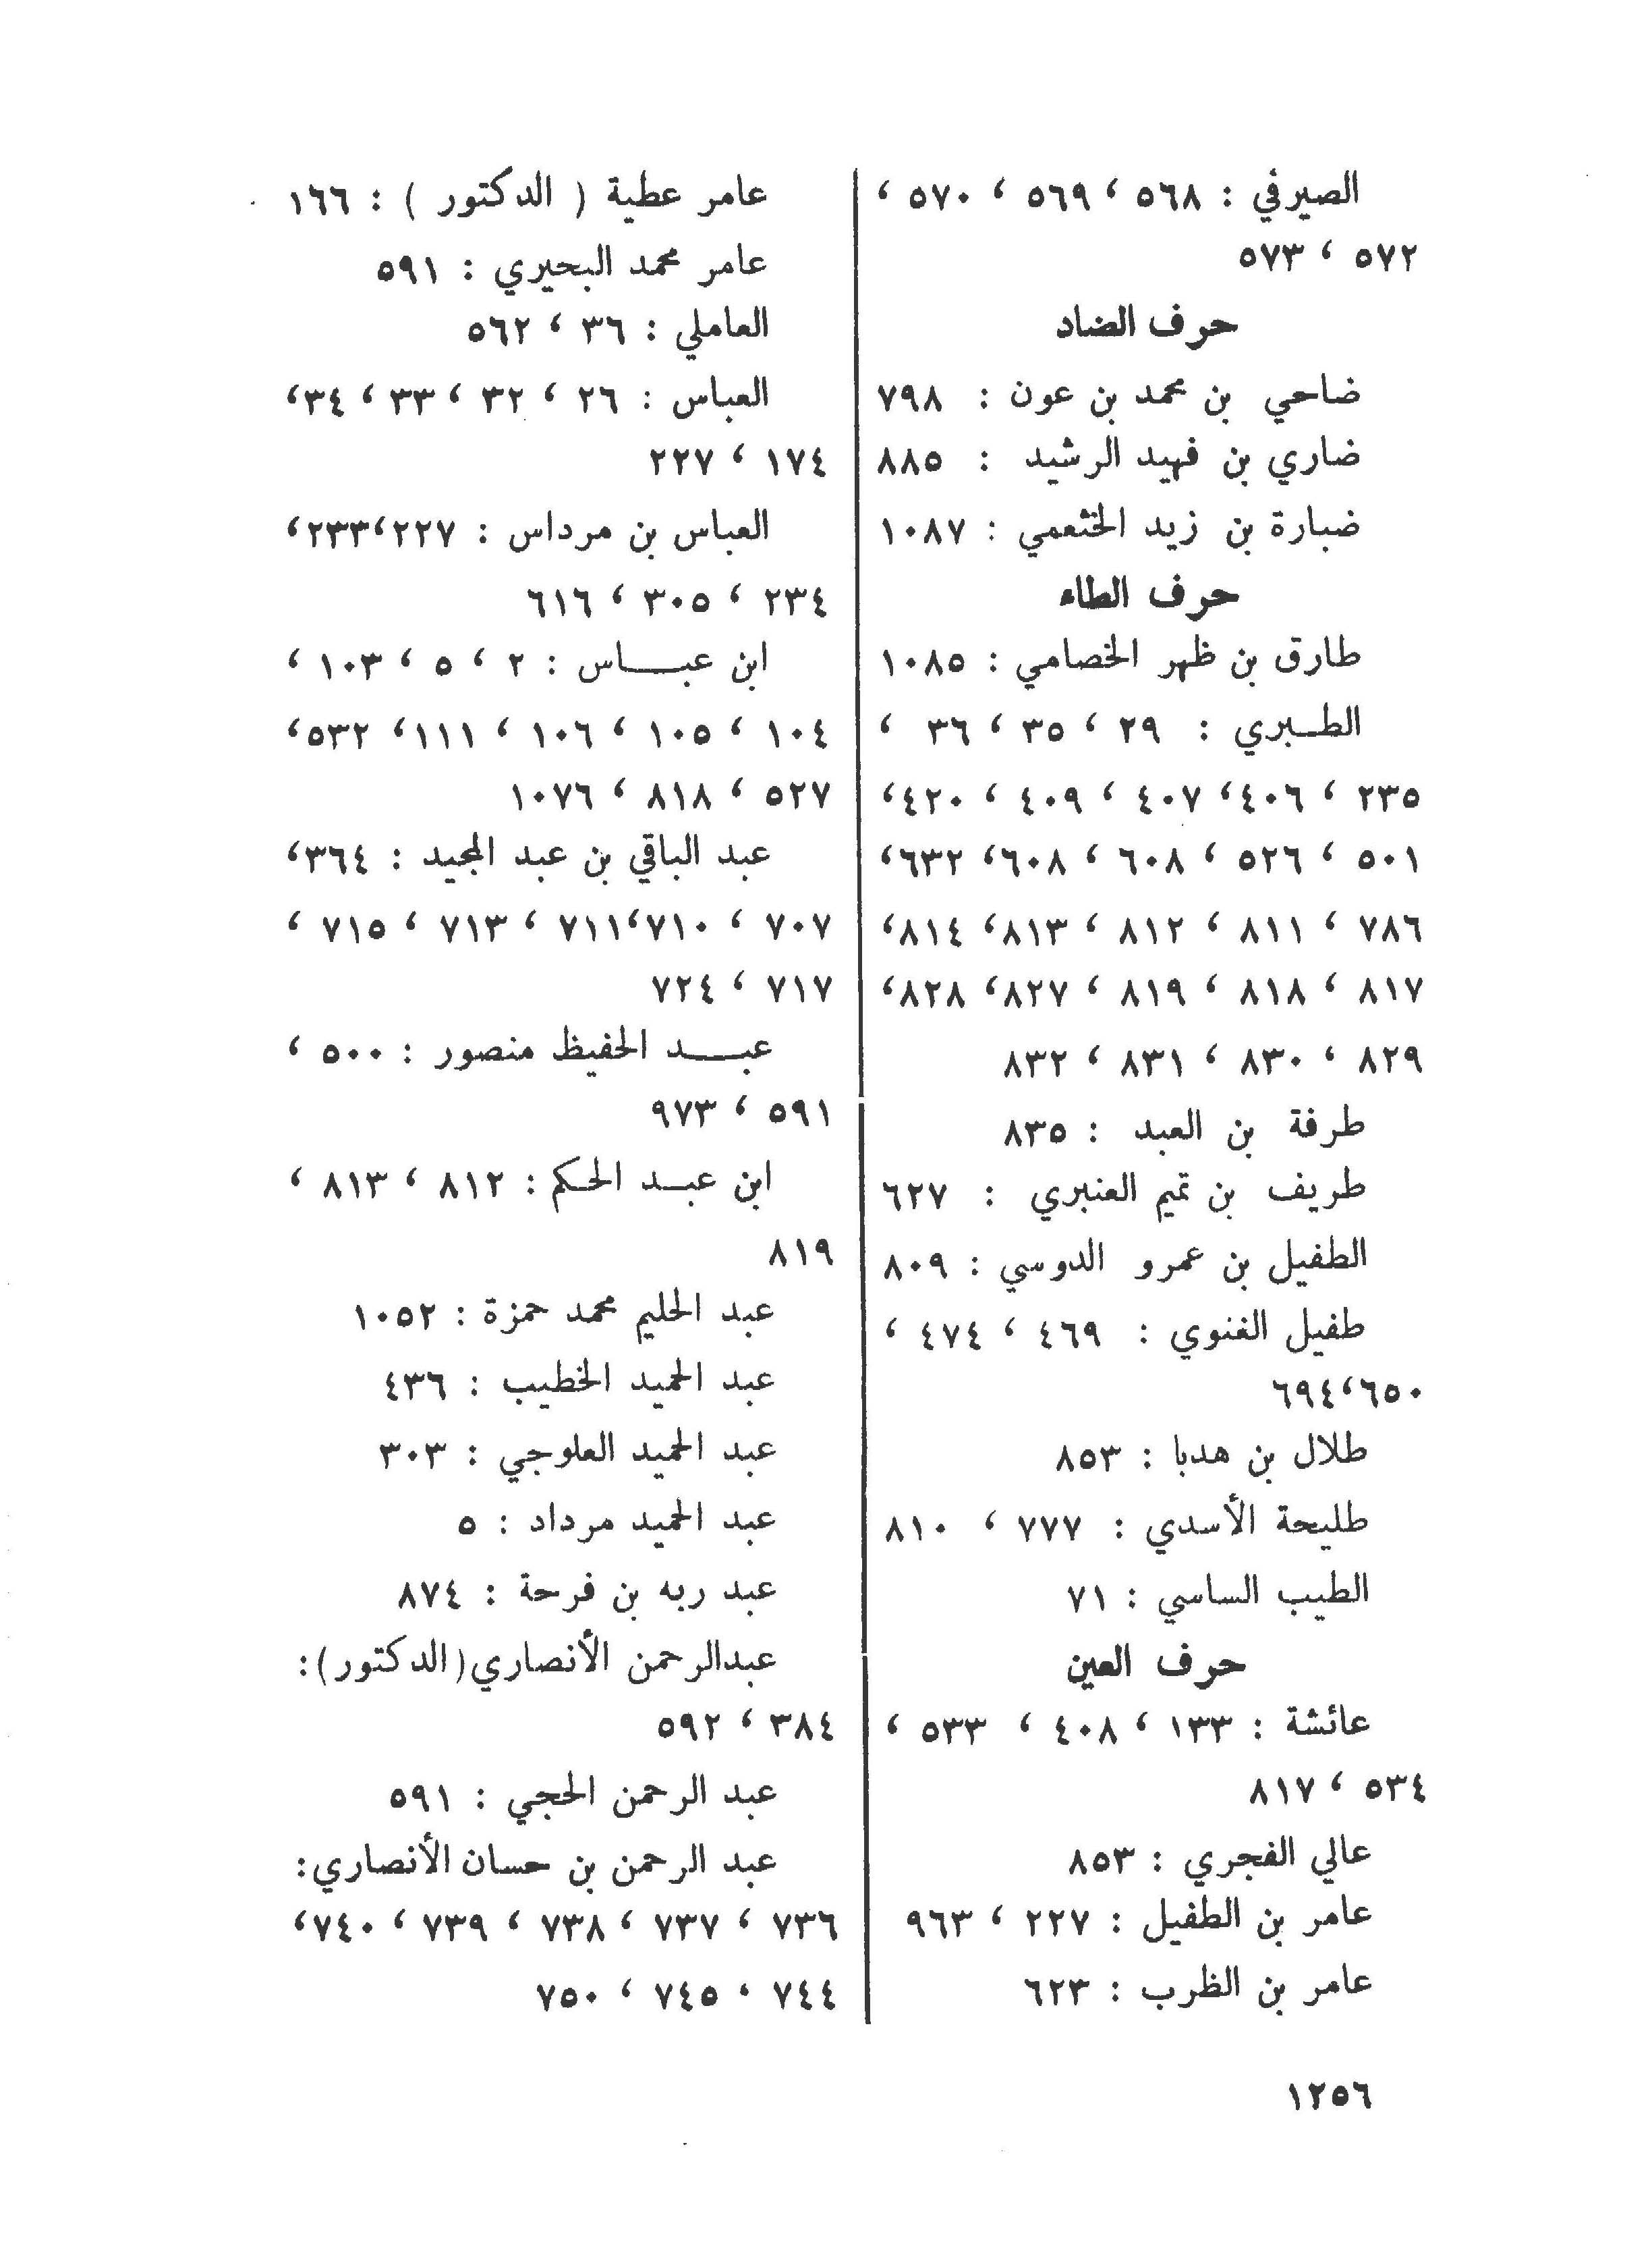 الصيرفي : ٥٦٨ ، ٥٦٩ ، ٥٧٠ ،
٥٧٢ ، ٥٧٣
حرف الضاد
ضاحي بن محمد بن عون : ٧٩٨
ضاري بن فهيد الرشيد : ٨٨٥
ضبارة بن زيد الخثعمي : ١٠٨٧
حرف الطاء
طارق بن ظهر الخصامي : ١٠٨٥
الطــبري : ٢٩ ، ٣٥ ، ٣٦ ،
٢٣٥ ، ٤٠٦، ٤٠٧ ، ٤٠٩ ، ٤٢٠،
٥٠١ ، ٥٢٦ ، ٦٠٨ ، ٦٠٨، ٦٣٢،
٧٨٦ ، ٨١١ ، ٨١٢ ، ٨١٣، ٨١٤،
٨١٧ ، ٨١٨ ، ٨١٩ ، ٨٢٧، ٨٢٨،
٨٢٩ ، ٨٣٠ ، ٨٣١ ، ٨٣٢
طرفة بن العبد : ٨٣٥
طريف بن تميم العنبري : ٦٢٧
الطفيل بن عمرو الدوسي : ٨٠٩
طفيل الغنوي : ٤٦٩ ، ٤٧٤ ،
٦٥٠،٦٩٤
طلال بن هدبا : ٨٥٣
طليحة الأسدي : ٧٧٧ ، ٨١٠
الطيب الساسي : ٧١
حرف العين
عائشة : ١٣٣ ، ٤٠٨ ، ٥٣٣ ،
٥٣٤ ، ٨١٧
عالي الفجري : ٨٥٣
عامر بن الطفيل : ٢٢٧ ، ٩٦٣
عامر بن الظرب : ٦٢٣
عامر عطية ( الدكتور ) : ١٦٦
عامر محمد البحيري : ٥٩١
العاملي : ٣٦ ، ٥٦٢
العباس : ٢٦ ، ٣٢ ، ٣٣ ، ٣٤،
١٧٤ ، ٢٢٧
العباس بن مرداس : ٢٢٧،٢٣٣،
٢٣٤ ، ٣٠٥ ، ٦١٦
ابن عبــــاس : ٢ ، ٥ ، ١٠٣ ،
١٠٤ ، ١٠٥ ، ١٠٦ ، ١١١، ٥٣٢،
٥٢٧ ، ٨١٨ ، ١٠٧٦
عبد الباقي بن عبد المجيد : ٣٦٤،
٧٠٧ ، ٧١٠،٧١١ ، ٧١٣ ، ٧١٥ ،
٧١٧ ، ٧٢٤
عبــــد الحفيظ منصور : ٥٠٠ ،
٥٩١ ، ٩٧٣
ابن عبــد الحكم : ٨١٢ ، ٨١٣ ،
٨١٩
عبد الحليم محمد حمزة : ١٠٥٢
عبد الحميد الخطيب : ٤٣٦
عبد الحميد العلوجي : ٣٠٣
عبد الحميد مرداد : ٥
عبد ربه بن فرحة : ٨٧٤
عبدالرحمن الأنصاري(الدكتور):
٣٨٤ ، ٥٩٢
عبد الرحمن الحجي : ٥٩١
عبد الرحمن بن حسان الأنصاري:
٧٣٦ ، ٧٣٧ ، ٧٣٨ ، ٧٣٩ ، ٧٤٠،
٧٤٤ ، ٧٤٥ ، ٧٥٠
١٢٥٦